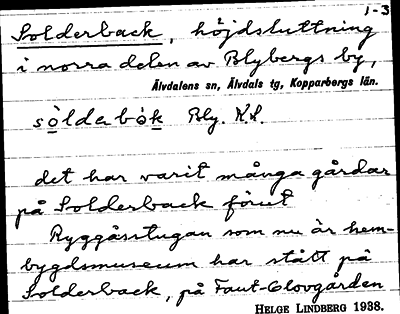 1-3
Solderback, höjdsluttning
i norra delen av Blybergs by,
Älvdalens sn, Älvdals tg, Kopparbergs län.
sòldabòk Bly. KL.
det har varit många gårdar
på Solderback förut
Ryggåsstugan som nu är hem-
bygdsmuseum har stått på
Solderback, på Faut-Olovgården
HELGE LINDBERG 1938.